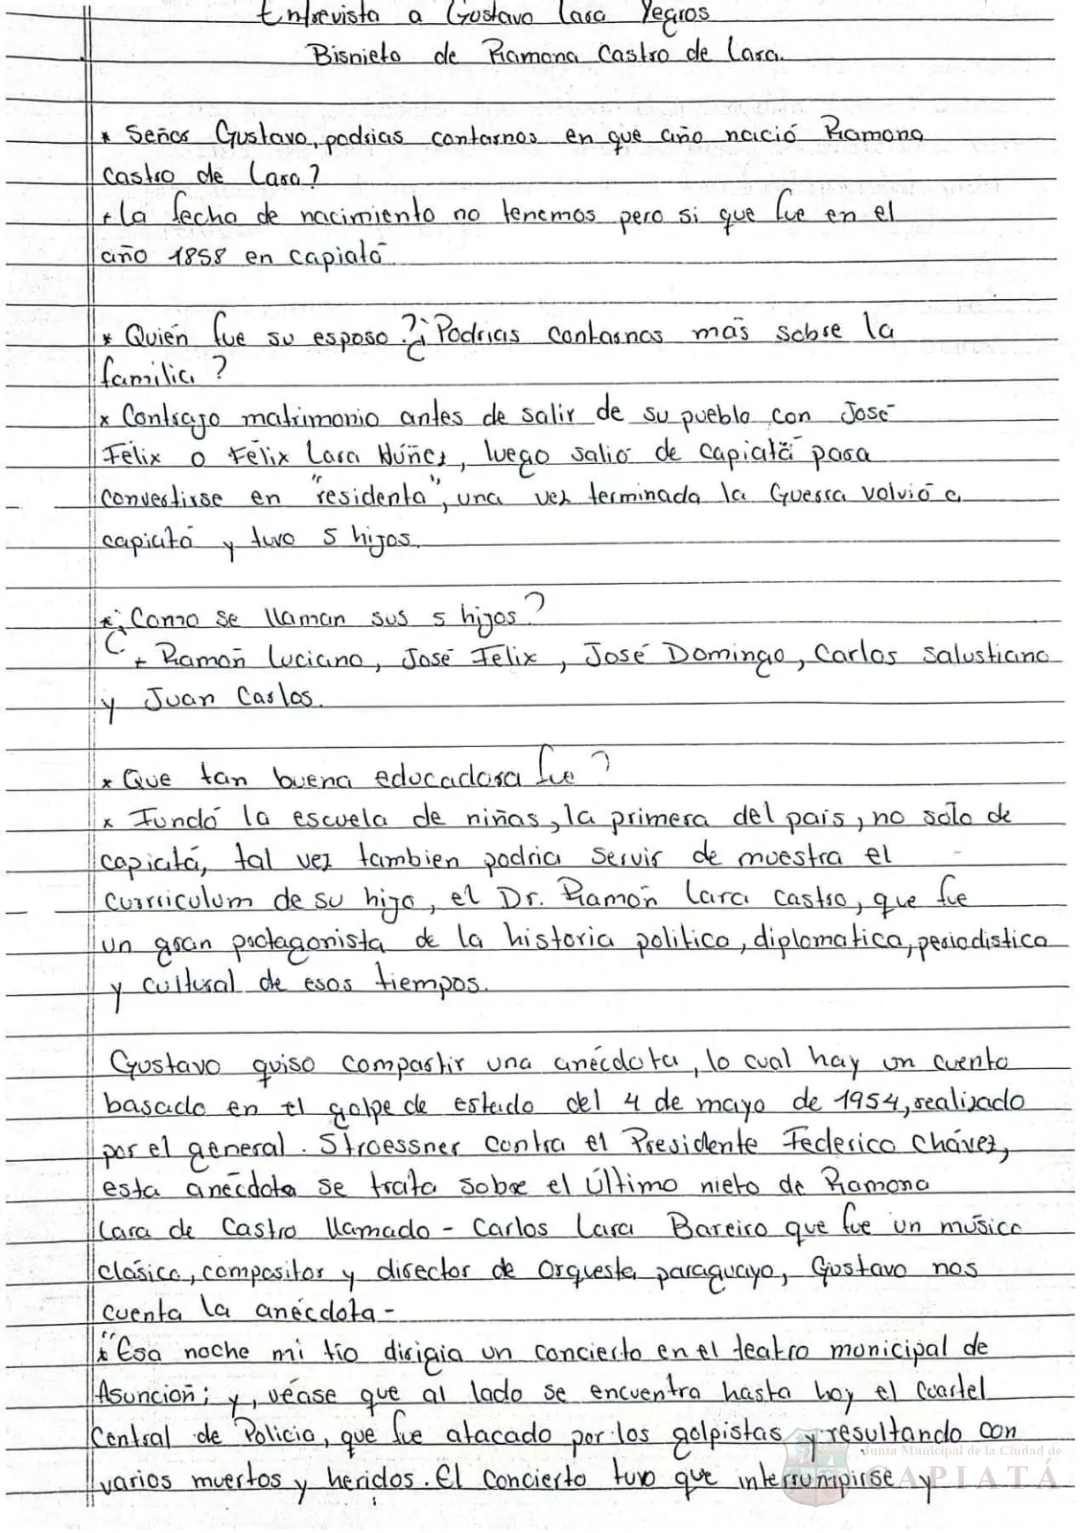 Entrevista a Gustavo Lara Yegros
Bisnieto de Ramona Castro de Lara.
* Señor Gustavo, podrias contarnos en que año nació Ramona
Castro de Lara?
+ la fecha de nacimiento no tenemos pero si que fue en el
año 1858 en capiatá
* Quién fue su esposo? ¿Podrias contarnos más sobre la
familia?
x Contrajo matrimonio antes de salir de su pueblo con José
Félix o Félix Lara Núñez, luego salió de capiatá para
convertirse en "residenta", una vez terminada la Guerra volvió a
capiatá y tuvo 5 hijos.
* ¿Como se llaman sus 5 hijos?
+ Ramón Luciano, José Felix, José Domingo, Carlos Salustiano
y Juan Carlos.
x Que tan buena educadora fue?
x Fundó la escuela de niñas, la primera del pais, no solo de
capiatá, tal vez tambien podria servir de muestra el
curriculum de su hijo, el Dr. Ramón Lara Castro, que fue
un gran protagonista de la historia politica, diplomatica, periodistica
y cultural de esos tiempos.
Gustavo quiso compartir una anécdota, lo cual hay un cuento
basado en el golpe de estado del 4 de mayo de 1954, realizado
por el general. Stroessner contra el Presidente Federico Chávez,
esta anécdota se trata sobre el último nieto de Ramona
Lara de Castro llamado - Carlos Lara Bareiro que fue un músico
clásico, compositor y director de Orquesta paraguayo, Gustavo nos
cuenta la anécdota -
x "Esa noche mi tio dirigia un concierto en el teatro municipal de
Asunción; y, véase que al lado se encuentra hasta hoy el Cuartel
Central de Policia, que fue atacado por los golpistas y resultando con
varios muertos y heridos. El Concierto tuvo que interrumpirse y
Junta Municipal de la Ciudad de
CAPIATÁ